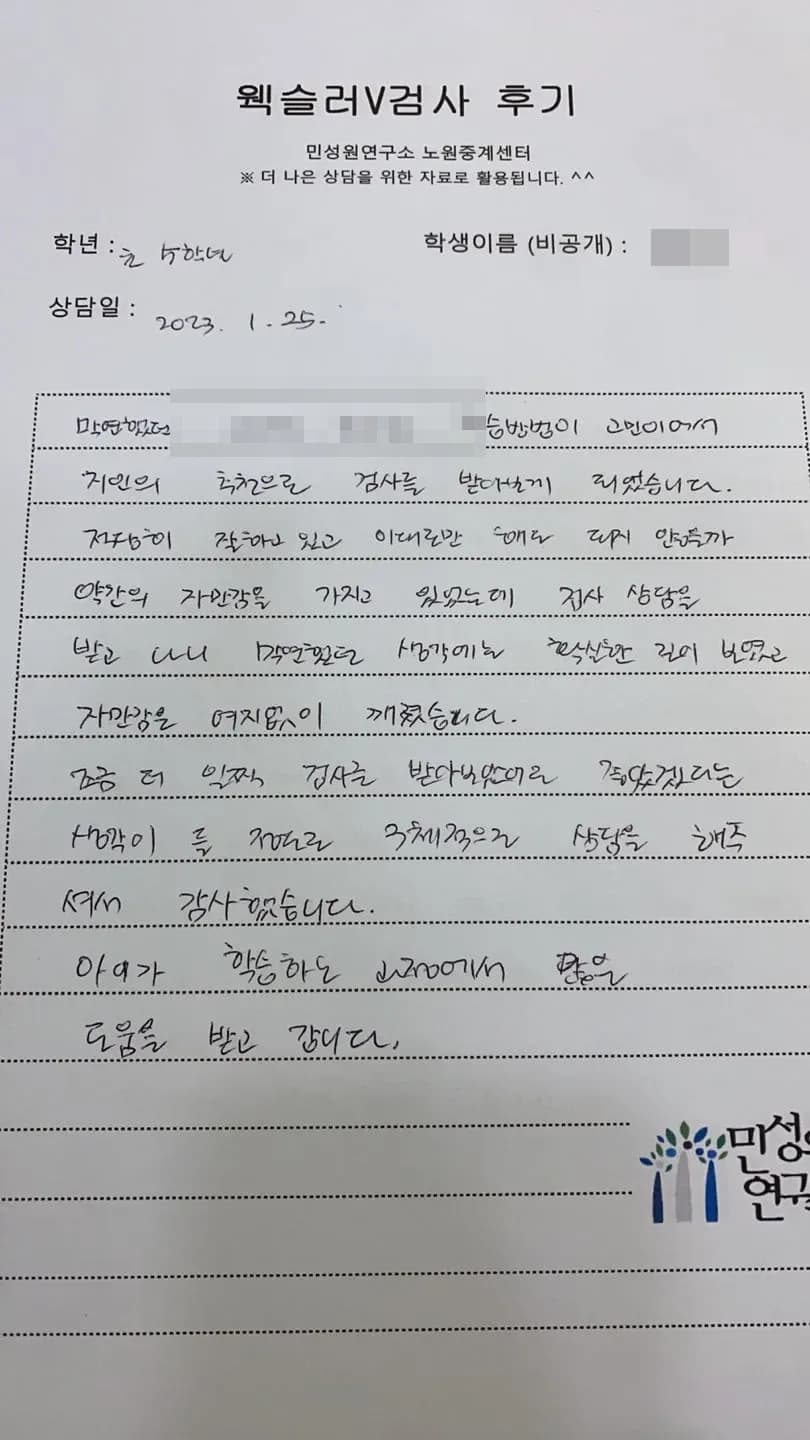 웩슬러V검사 후기
민성원연구소 노원중계센터
※ 더 나은 상담을 위한 자료로 활용됩니다. ^^
학년 : 초 5학년
학생이름 (비공개) :
상담일 : 2023. 1. 25.
막연했던 습방법이 고민이어서
지인의 추천으로 검사를 받아보게 되었습니다.
적당히 잘하고 있고 이대로만 해도 되지 않을까
약간의 자만감을 가지고 있었는데 검사 상담을
받고 나니 막연했던 생각에는 확실한 길이 보였고
자만감은 여지없이 깨졌습니다.
조금 더 일찍 검사를 받아보았어도 좋았겠다는
생각이 들 정도로 구체적으로 상담을 해주
셔서 감사했습니다.
아이가 학습하는 과정에서 많은
도움을 받고 갑니다.
민성
연구